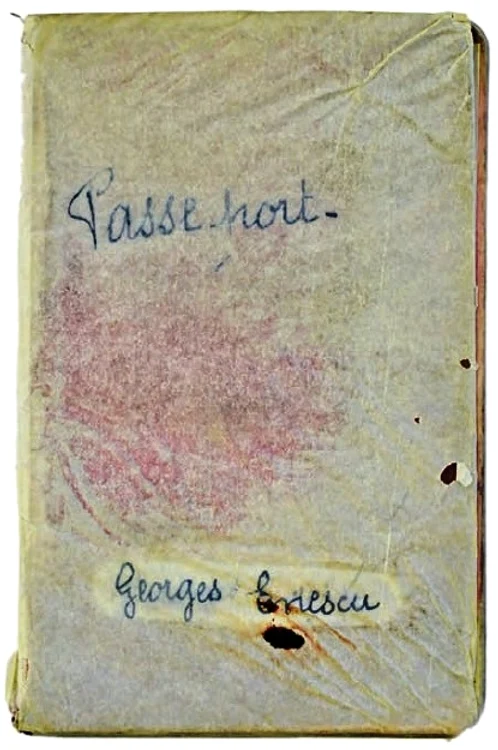 Passe-port-
Georges Enescu